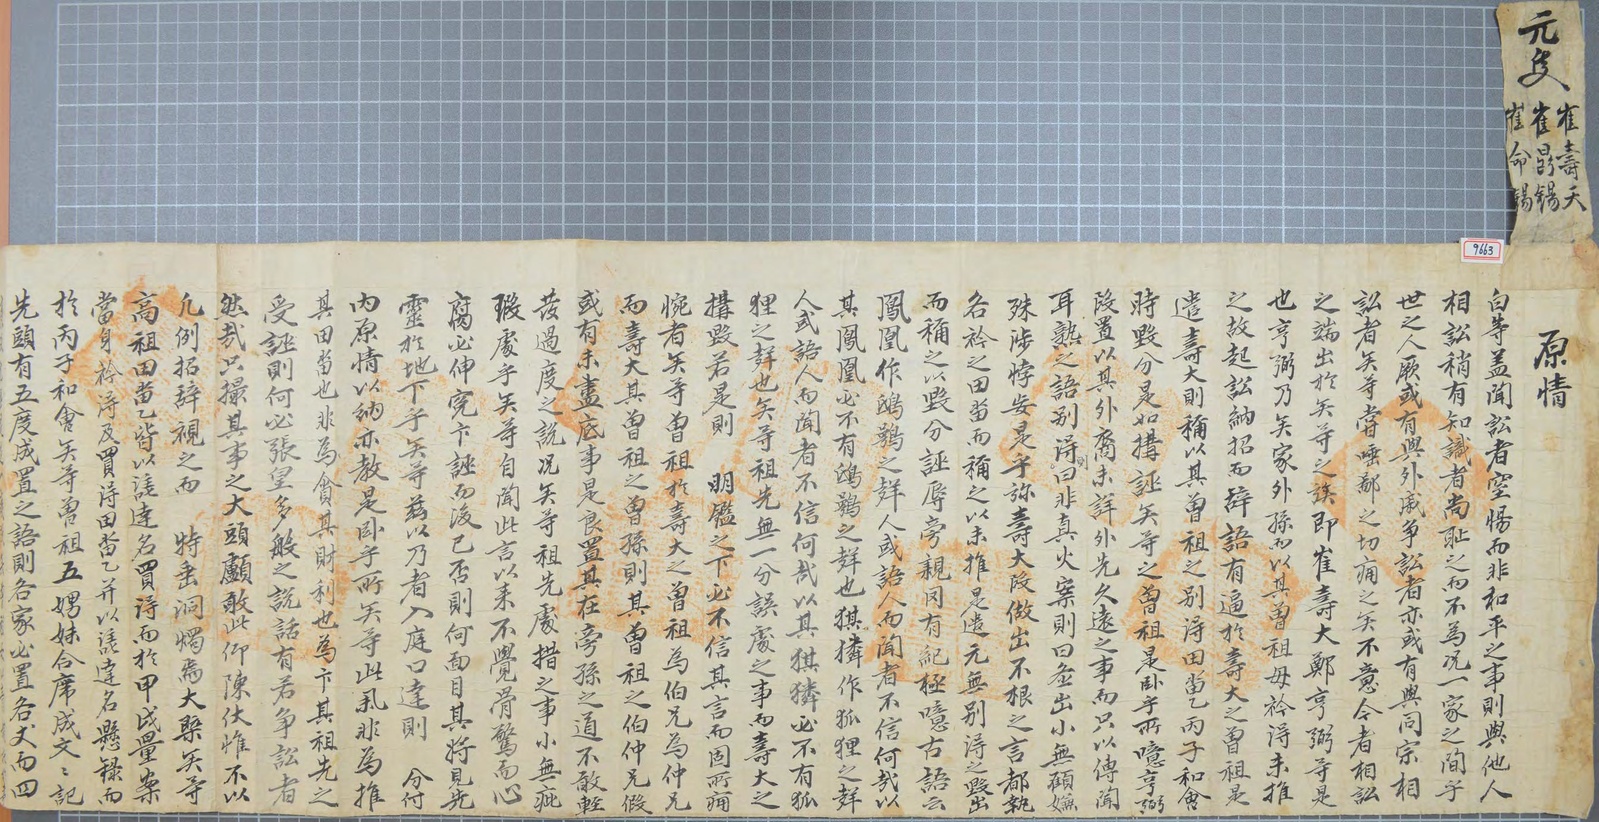 元隻
崔壽天
崔昌錫
崔命錫
9663
原情
白等盖聞訟者空惕而非和平之事則與他人
相訟稍有知識者尚耻之而不為况一家之間乎
世之人厥或有與外戚爭訟者亦或有與同宗相
訟者矣等嘗唾鄙之切痛之矣不意今者相訟
之端出於矣等之族即崔壽大鄭亨弼等是
也亨弼乃矣家外孫而以其曾祖母衿淂未推
之故起訟納招而辞語有逼於壽大之曾祖是
遣壽大則稱以其曾祖之別淂田畓乙丙子和會
時毁分是如搆誣矣等之曾祖是卧乎所噫亨弼
段置以其外裔未詳外先久遠之事而只以傳聞
耳熟之語別淂曰非真火案則曰盃出小無顧嫌
殊涉悖妄是乎弥壽大段做出不根之言都執
各衿之田畓而稱之以未推是遣元無別淂之毁出
而稱之以毁分誣辱旁親罔有紀極噫古語云
鳳凰作鴟鶚之群人或語人而聞者不信何哉以
其鳳凰必不有鴟鶚之群也猉獜作狐狸之群
人或語人而聞者不信何哉以其猉獜必不有狐
狸之群也矣等祖先無一分誤處之事而壽大之
搆毁若是則 明鑑之下必不信其言而固所痛
惋者矣等曾祖於壽大之曾祖為伯兄為仲兄
而壽大其曾祖之曾孫則其曾祖之伯仲兄假
或有未盡底事是良置其在旁孫之道不敢輕
發過度之說况矣等祖先處措之事小無疵
瑕處乎矣等自聞此言以来不覺骨驚而心
腐必伸寃卞誣而後已否則何面目其將見先
靈於地下乎矣等玆以乃者入庭口達則 分付
内原情以納亦教是卧乎所矣等此擧非為推
其田畓也非為貪其財利也為卞其祖先之
受誣則何必張皇多般之說話有若爭訟者
然哉只撮其事之大頭顱敢此仰陳伏惟不以
凡例招辞視之而 特垂洞燭焉大槩矣等
高祖田畓乙皆以詿達名買淂而於甲戌量案
當身衿淂及買淂田畓乙并以詿達名懸錄而
於丙子和會矣等曾祖五娚妹合席成文〻記
先頭有五度成置之語則各家必置各丈而四